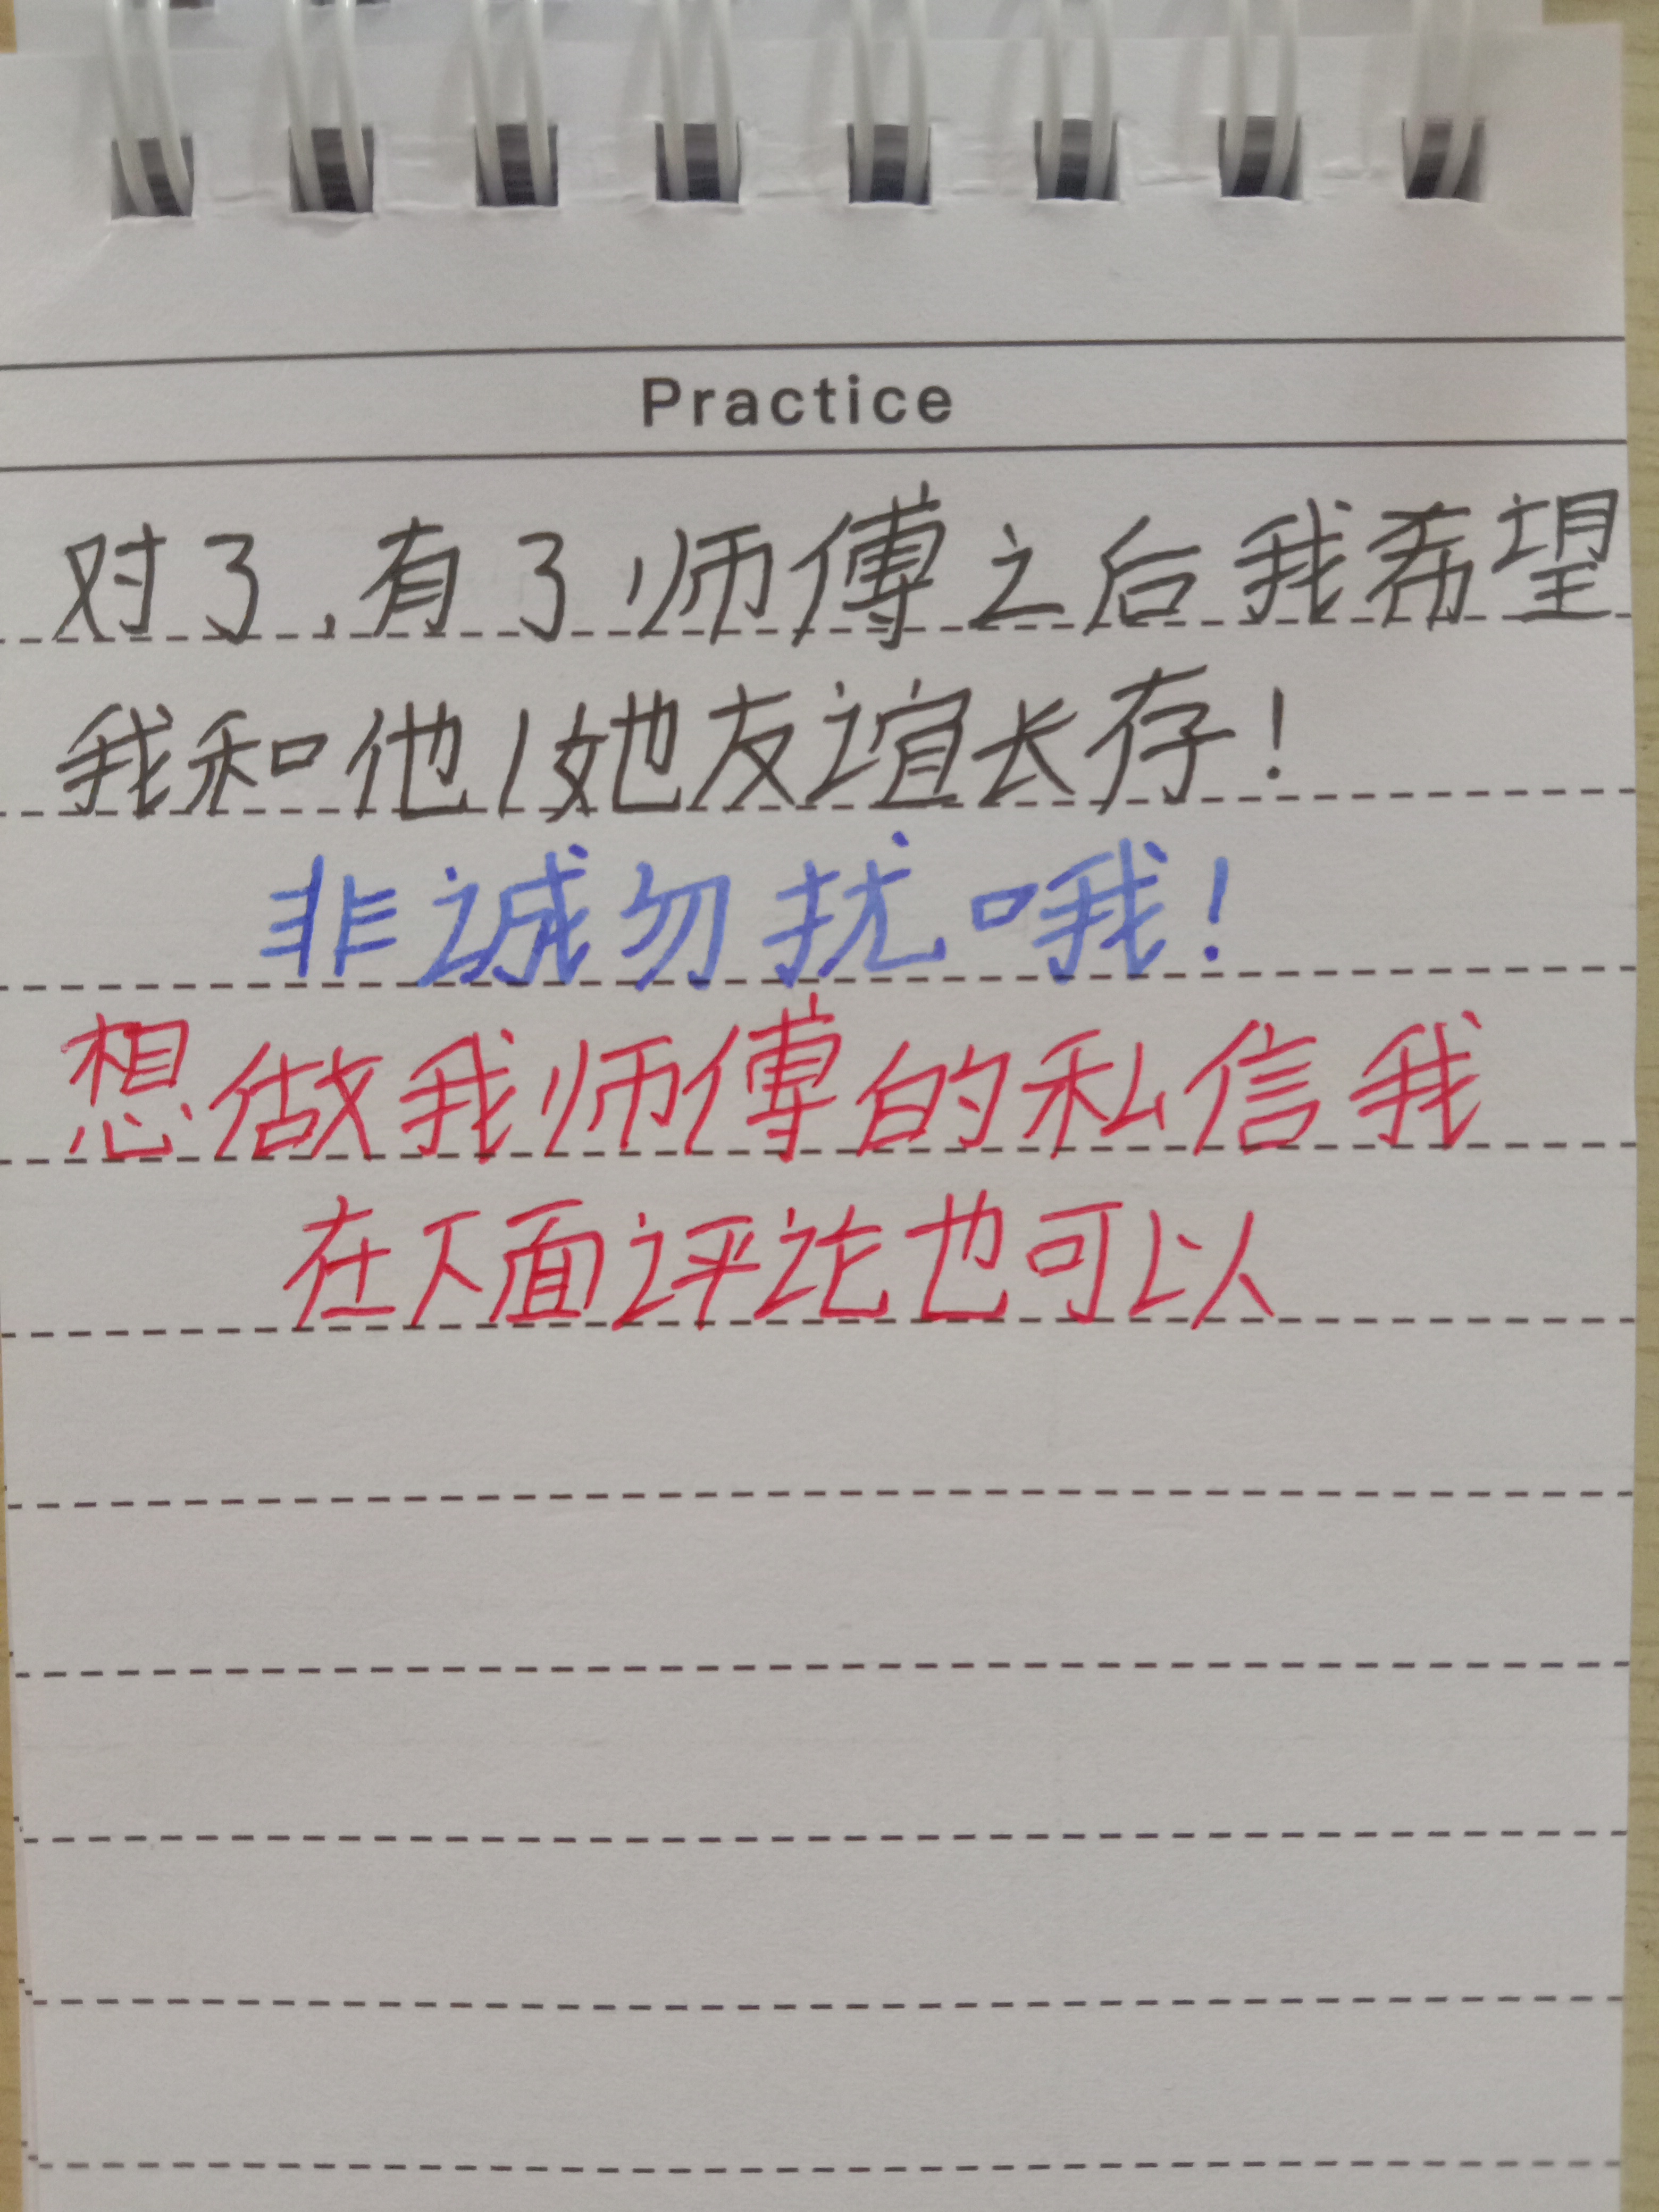 Practice
对了,有了师傅之后我希望
我和他/她友谊长存!
非诚勿扰哦!
想做我师傅的私信我
在下面评论也可以